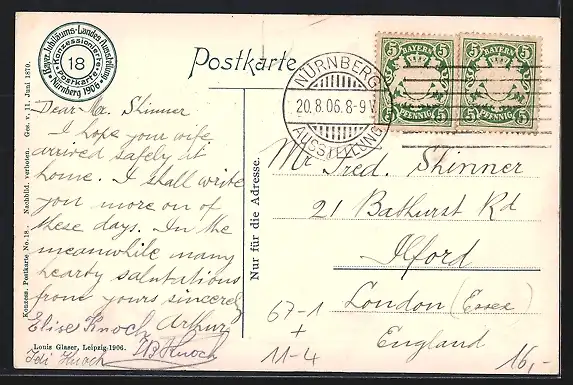 Bayer. Jubiläums-Landes-Ausstellung
Konzessionierte
18
Postkarte
Nürnberg 1906
Postkarte
NÜRNBERG
20.8.06.8-9V.
AUSSTELLUNG
5 BAYERN 5
5 PFENNIG 5
5 BAYERN 5
5 PFENNIG 5
Dear Mr. Shinner
I hope your wife
arrived safely at
home. I shall write
you more on of
these days. In the
meanwhile many
hearty salutations
from yours sincerely
Arthur
Elise Knoch
Knoch
Knoch
Louis Glaser, Leipzig-1906.
Konzess. Postkarte No. 18. Nachbild. verboten. Ges. v. 11. Juni 1870.
Nur für die Adresse.
Mr Fred. Shinner
21 Bathurst Rd
Ilford
London (Essex)
England
67-1
+
11-4
16,-